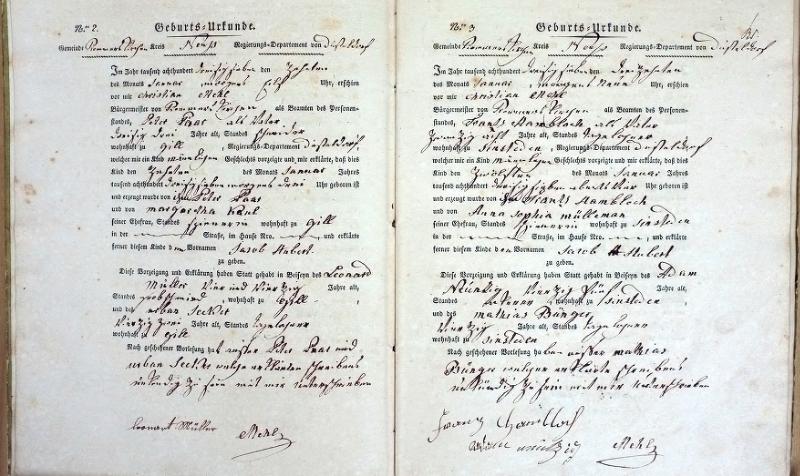 Nro. 2. Geburts-Urkunde.
Gemeinde Rommerskirchen Kreis Neuss Regierungs-Departement von Düsseldorf
Im Jahr tausend achthundert dreisig sieben den Zehnten
des Monats Januar morgens Uhr, erschien
vor mir Christian Mehl
Bürgermeister von Rommerskirchen als Beamten des Personen-
standes, Peter Paas als Vater
dreisig drei Jahre alt, Standes Schneider
wohnhaft zu Gill, Regierungs-Departement Düsseldorf,
welcher mir ein Kind männlichen Geschlechts vorzeigte und mir erklärte, daß dies
Kind den Zehnten des Monats Januar Jahres
tausend achthundert dreisig sieben morgens drei Uhr geboren ist
und erzeugt wurde von Peter Paas
und von margaretha Kaul
seiner Ehefrau, Standes wohnhaft zu Gill
in der Straße, im Hause Nro. und erklärte
ferner diesem Kinde den Vornamen Jacob Hubert
zu geben.
Diese Vorzeigung und Erklärung haben Statt gehabt in Beiseyn des Leonard
Müller vier und vierzig Jahre alt,
Standes grobschmied, wohnhaft zu Gill
und des urban Secker
vierzig zwei Jahre alt, Standes Tagelöhner
wohnhaft zu Gill
Nach geschehener Vorlesung hat ausser Peter Paas und
urban Secker welche erklärten schreibens
unkundig zu sein mit mir unterschrieben
Leonart Müller Mehl
Nro. 3 Geburts-Urkunde.
Gemeinde Rommerskirchen Kreis Neuss Regierungs-Departement von Düsseldorf
Im Jahr tausend achthundert dreisig sieben den dreizehnten
des Monats Januar, morgens neun Uhr, erschien
vor mir Christian Mehl
Bürgermeister von Rommerskirchen als Beamten des Personen-
standes, Frantz Hambloch als Vater
zwanzig acht Jahre alt, Standes Tagelöhner
wohnhaft zu Sinsteden, Regierungs-Departement Düsseldorf
welcher mir ein Kind männlichen Geschlechts vorzeigte und mir erklärte, daß dies
Kind den Zwölften des Monats Januar Jahres
tausend achthundert dreisig sieben abends Uhr geboren ist
und erzeugt wurde von Frantz Hambloch
und von Anna Sophia mülleman
seiner Ehefrau, Standes wohnhaft zu Sinsteden
in der Straße, im Hause Nro. und erklärte
ferner diesem Kinde den Vornamen Jacob Hubert
zu geben.
Diese Vorzeigung und Erklärung haben Statt gehabt in Beiseyn des Adam
vierzig fünf Jahre alt,
Standes wohnhaft zu Sinsteden,
und des mathias Bünger
vierzig Jahre alt, Standes Tagelöhner
wohnhaft zu Sinsteden
Nach geschehener Vorlesung haben ausser mathias
Bünger welcher erklärte schreibens
unkündig zu sein mit mir unterschrieben
Franz Hambloch
Mehl